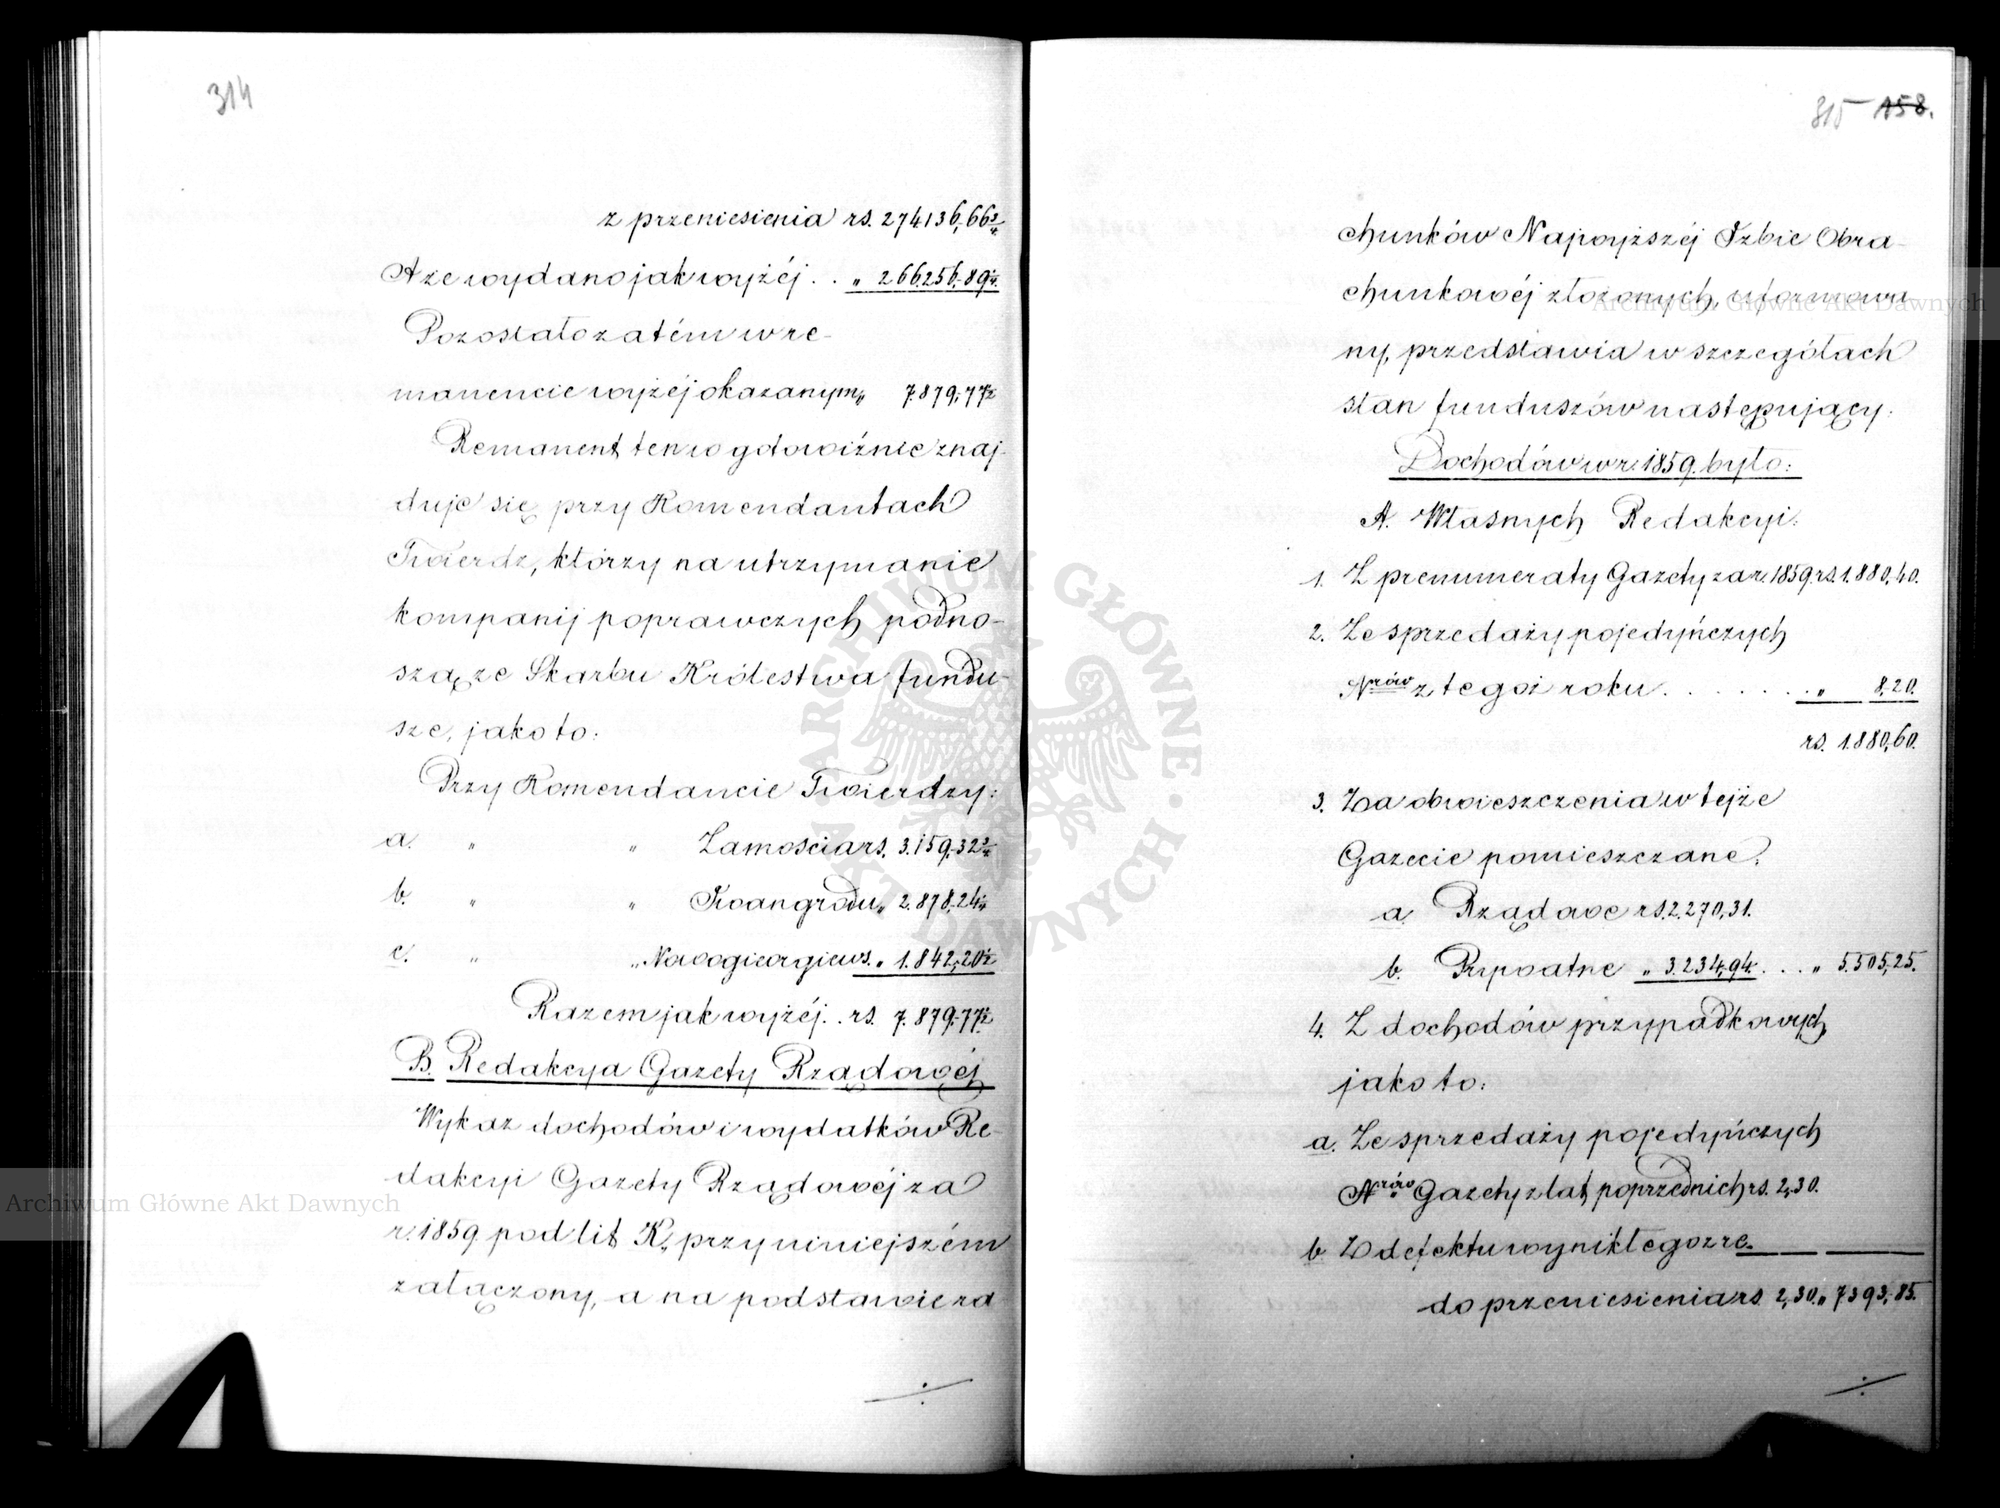 314
z przeniesienia rs. 274136,66¾
A że wydano jak wyżéj . . „ 266256,89¼
Pozostało zatém w re-
manencie wyżéj okazanym „ 7.879,77½
Remanent ten w gotowiźnie znaj-
duje się przy Komendantach
Twierdz, którzy na utrzymanie
kompanij poprawczych podno-
szą ze Skarbu Królestwa fundu-
sze, jako to:
Przy Komendancie Twierdzy:
a. „ „ Zamościa rs. 3.159,32¾
b. „ „ Iwangrodu „ 2.878,24¼
c. „ „ Nowogieorgiews. „ 1.842,20½
Razem jak wyżéj . . rs. 7.879,77½
B. Redakcya Gazety Rządowéj
Wykaz dochodów i wydatków Re-
dakcyi Gazety Rządowéj za
r. 1859 pod lit K, przy niniejszém
załączony, a na podstawie ra
315 158.
chunków Najwyższéj Izbie Obra-
chunkowéj złożonych, uformowa
ny, przedstawia w szczegółach
stan funduszów następujący:
Dochodów w r. 1859. było:
A. Własnych Redakcyi:
1. Z prenumeraty Gazety za r. 1859. rs. 1.880,40.
2. Ze sprzedaży pojedyńczych
Nrów z tegoż roku . . . . . . . „ 8,20.
rs. 1.880,60.
3. Za obwieszczenia w tejże
Gazecie pomieszczane:
a. Rządowe rs. 2.270,31.
b. Prywatne „ 3.234,94. . . . „ 5.505,25.
4. Z dochodów przypadkowych
jako to:
a. Ze sprzedaży pojedyńczych
Nrów Gazety z lat poprzednich rs. 2,30.
b. Z defektu wynikłego z re.
do przeniesienia rs. 2,30. „ 7393,85.
Archiwum Główne Akt Dawnych
Archiwum Główne Akt Dawnych
ARCHIWUM GŁÓWNE AKT DAWNYCH